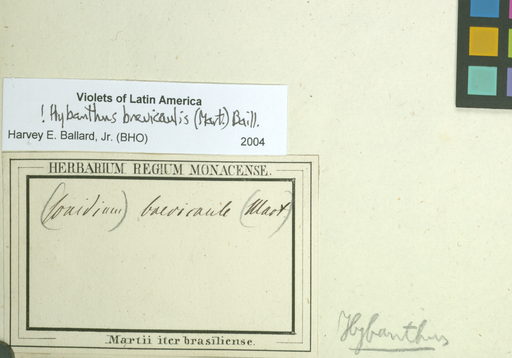 Violets of Latin America
! Hybanthus brevicaulis (Mart.) Baill.
Harvey E. Ballard, Jr. (BHO)
2004
HERBARIUM REGIUM MONACENSE.
(Ionidium) brevicaule (Mart)
Martii iter brasiliense.
Hybanthus